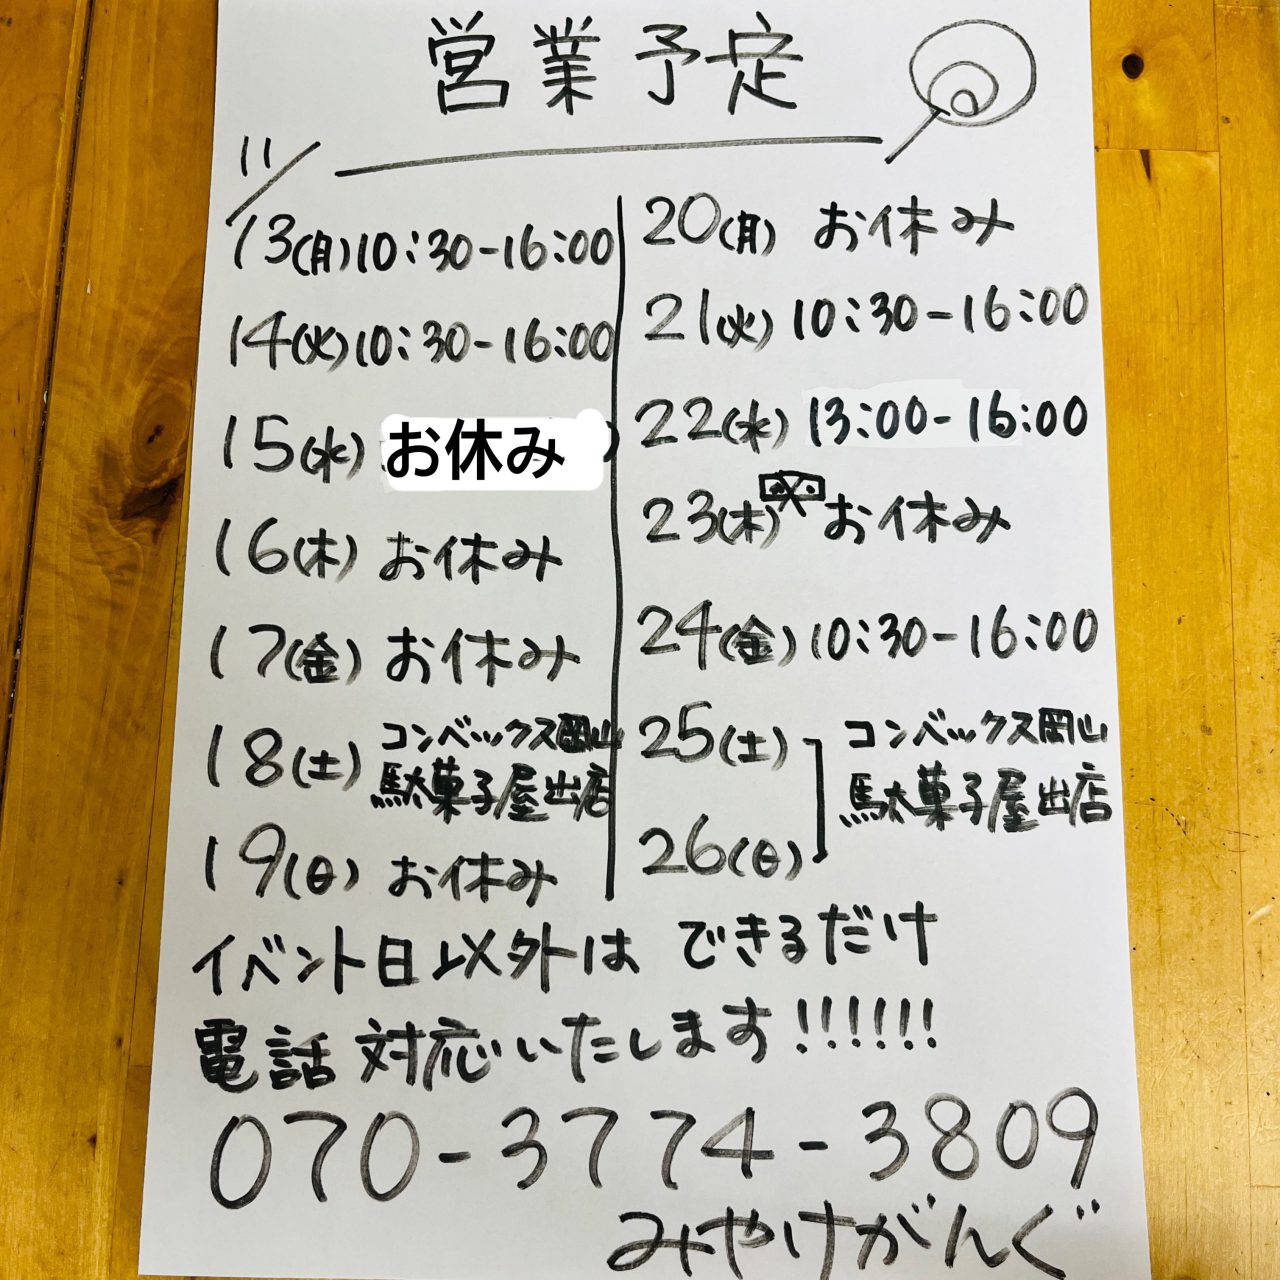 営業予定
11/
13(月)10:30-16:00
14(火)10:30-16:00
15(水)お休み
16(木)お休み
17(金)お休み
18(土)コンベックス岡山
駄菓子屋出店
19(日)お休み
20(月)お休み
21(火)10:30-16:00
22(水)13:00-16:00
23(木)お休み
24(金)10:30-16:00
25(土)コンベックス岡山
駄菓子屋出店
26(日)
イベント日以外はできるだけ
電話対応いたします!!!!!!
070-3774-3809
みやけがんぐ